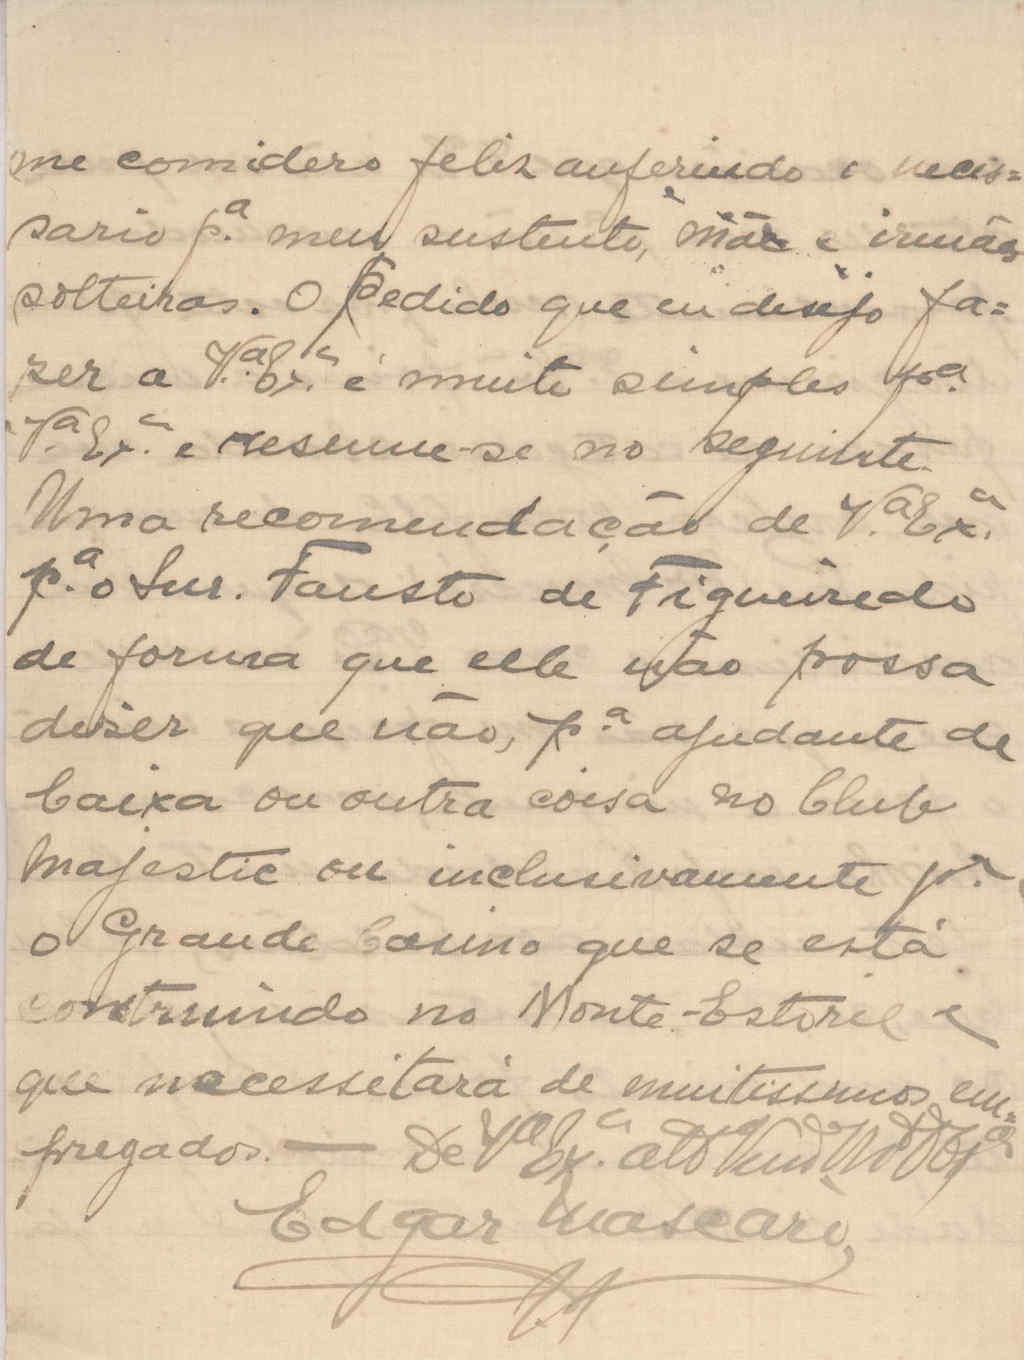 me considero feliz auferindo o neces=
sario p.ª meu sustento, mãe e irmãs
solteiras. O Pedido que eu desejo fa=
zer a V.ª Ex.ª é muito simples p.ª
V.ª Ex.ª e resume-se no seguinte.
Uma recomendação de V.ª Ex.ª
p.ª o Snr. Fausto de Figueiredo
de forma que elle não possa
diser que não, p.ª ajudante de
Caixa ou outra coisa no Club
Majestic ou inclusivamente p.ª
o Grande Casino que se está
contruindo no Monte-Estoril e
que necessitará de muitissimos em=
pregados. — De V.ª Ex.ª
Edgar Mascaró